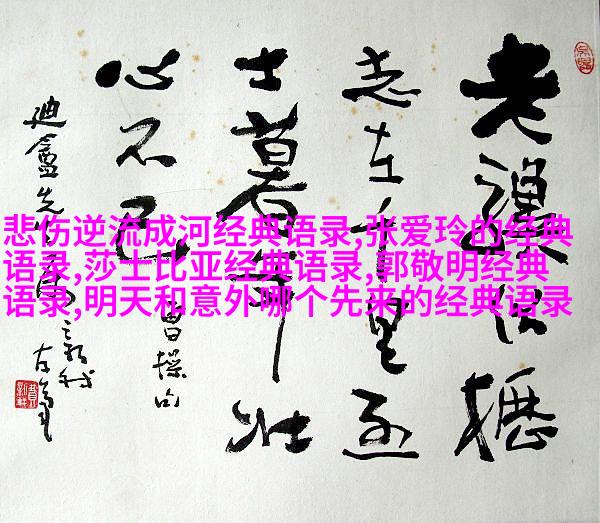 悲伤逆流成河经典语录,张爱玲的经典
语录,莎士比亚经典语录,郭敬明经典
语录,明天和意外哪个先来的经典语录
老驥伏櫪
志在千里烈
士暮年壮
心不已
曹操句
先生